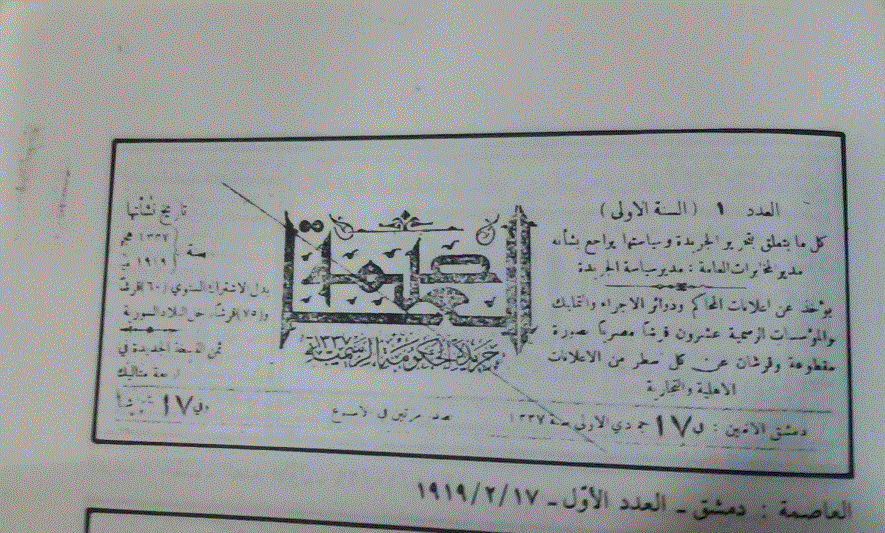 العدد ١ (السنة الاولى)
كل ما يتعلق بتحرير الجريدة وسياستها يراجع بشأنه
مدير المخابرات العامة : مدير سياسة الجريدة
يؤخذ عن اعلانات المحاكم ودوائر الاجراء والتمليك
والمؤسسات الرسمية عشرون قرشا مصريا بصورة
مقطوعة وقرشان عن كل سطر من الاعلانات
الاهلية والتجارية
العاصمة
جريدة الحكومة الرسمية
١٣٣٧
تاريخ نشأتها
سنة
١٣٣٧
١٩١٩
بدل الاشتراك السنوي (٦٠) قرشا
و(٧٥) قرشا خارج البلاد السورية
ثمن النسخة الجديدة في
اربعة متاليك
دمشق الاثنين : في ١٧ جمادي الاولى سنة ١٣٣٧
تصدر مرتين في الاسبوع
وفي ١٧ شباط
العاصمة : دمشق - العدد الأوّل - ١٩١٩/٢/١٧